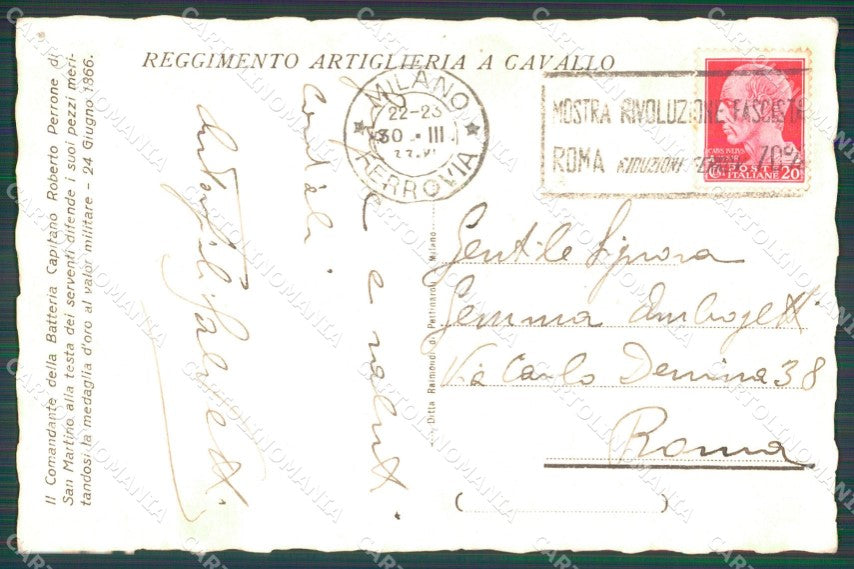 REGGIMENTO ARTIGLIERIA A CAVALLO
Il Comandante della Batteria Capitano Roberto Perrone di
San Martino alla testa dei serventi difende i suoi pezzi meri-
tandosi la medaglia d'oro al valor militare - 24 Giugno 1866.
MILANO
22-23
30 · III
FERROVIA
MOSTRA RIVOLUZIONE FASCISTA
ROMA RIDUZIONI FERROV. 70%
POSTE
ITALIANE 20
e
e saluti
cordiali.
Ditta Raimondi di Pettinaroli - Milano
Gentile Signora
Gemma
Via Carlo Denina 38
Roma
( )
CARTOLINOMANIA